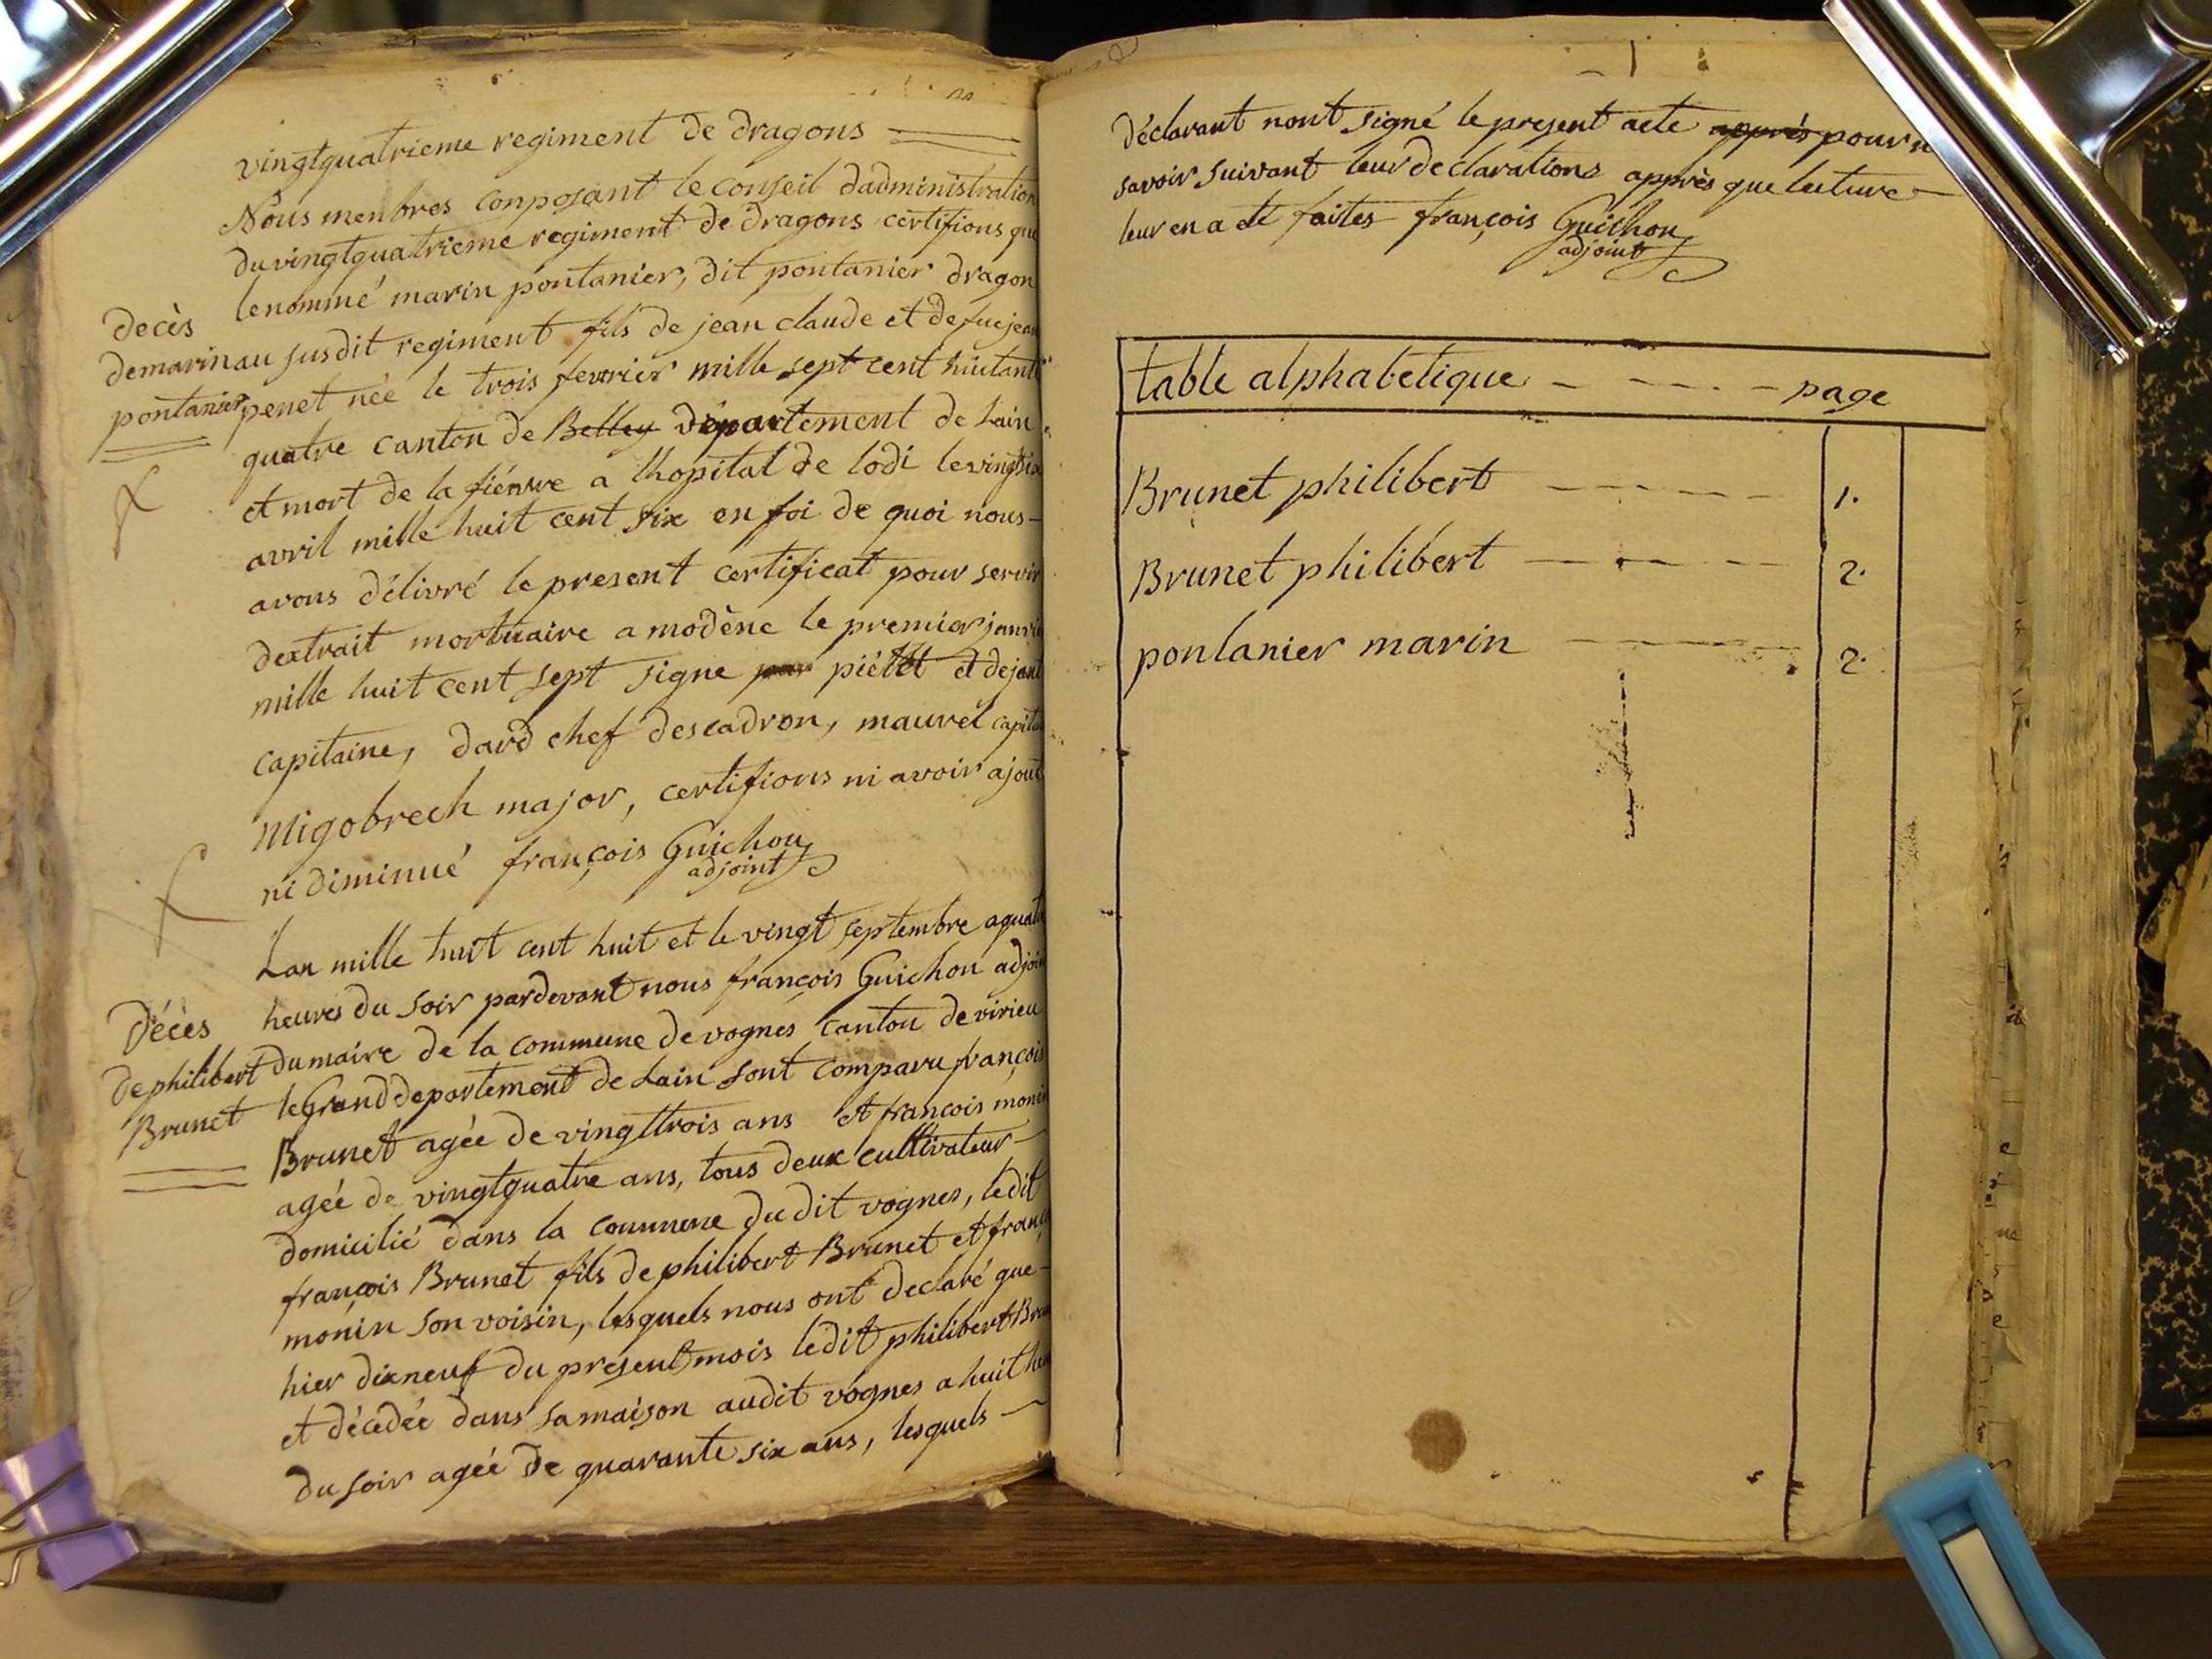 vingtquatrieme regiment de dragons
Nous menbres conposant le conseil dadministration
du vingtquatrieme regiment de dragons certifions que
le nommé marin pontanier, dit pontanier dragon
decès
de marin
pontanier
au susdit regiment fils de jean claude et de fue jean
penet née le trois fevrier mille sept cent huitante
quatre canton de Belley département de Lain
et mort de la fiénvre a lhopital de lodi le vingt
avril mille huit cent six en foi de quoi nous
avons délivré le present certificat pour servir
dextrait mortuaire a modène le premier janvi
mille huit cent sept signe par piétét et dejant
capitaine, dard chef descadron, maurel capit
Migobrech major, certifions ni avoir ajout
ni diminué françois Guichon
adjoint
Lan mille huit cent huit et le vingt septembre a quat
heures du soir pardevant nous françois Guichon adjoin
Décès
de philibert
Brunet
du maire de la commune de vognes canton de virieu
le Grand departement de Lain sont comparu françois
Brunet agée de vingttrois ans et françois monin
agée de vingtquatre ans, tous deux cultivateur
domicilié dans la commune du dit vognes, ledit
françois Brunet fils de philibert Brunet et franç
monin son voisin, lesquels nous ont declaré que
hier dixneuf du present mois ledit philibert Bru
et décédée dans sa maison audit vognes a huit heu
du soir agée de quarante six ans, lesquels
déclarant nont signé le present acte apprés pour n
savoir suivant leur declarations apprès que lecture
leur en a eté faites françois Guichon
adjoint
table alphabetique page
Brunet philibert 1.
Brunet philibert 2.
pontanier marin 2.